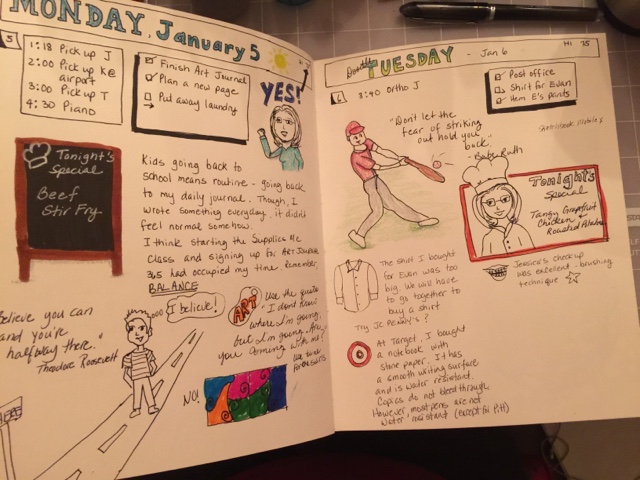 MONDAY, January 5
5
1:18 Pick up J
2:00 Pick up K@
airport
3:00 Pick up T
4:30 Piano
Finish Art Journal
Plan a new page
Put away laundry
YES!
Tonight's
Special
Beef
Stir Fry
Kids going back to
school means routine - going back
to my daily journal. Though, I
wrote something everyday, it didn't
feel normal somehow.
I think starting the Supplies Me
class and signing up for Art Journal
365 had occupied my time. Remember,
BALANCE
Believe you can
and you're
halfway there."
Theodore Roosevelt
I believe!
ART
Use the quote
"I don't know
where I'm going,
but I'm going. Are
you coming with me?"
NO!
TUESDAY - Jan 6
HI 25
6
3:40 Ortho J
Post office
Shirt for Evan
Hem E's pants
"Don't let the
fear of striking
out hold you
back."
- Babe Ruth
Tonight's
Special
Tangy Grapefruit
Chicken &
Roasted Potatoes
The shirt I bought
for Evan was too
big. We will have
to go together to
buy a shirt
Try Jc Penny's?
Jessica's check up
was excellent - brushing
technique
At Target, I bought
a notebook with
stone paper. It has
a smooth writing surface
and is water resistant.
Copics do not bleed through
However most pens are not
water resistant (except for Pitt)